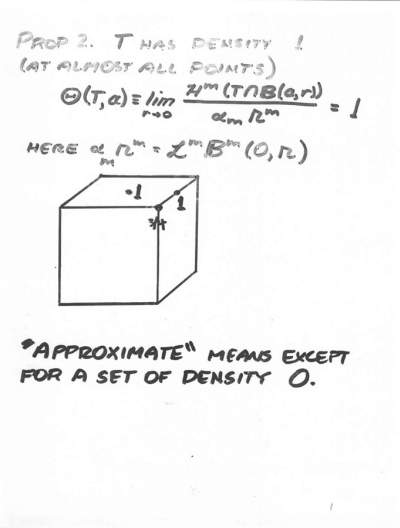 PROP 2. T HAS DENSITY 1
(AT ALMOST ALL POINTS)
Θ(T,a) ≡ lim r→0 ℋᵐ(T∩B(a,r)) / αₘ rᵐ = 1
HERE αₘ rᵐ = ℒᵐ Bᵐ(0,r)
·1
1
3/4
"APPROXIMATE" MEANS EXCEPT
FOR A SET OF DENSITY 0.